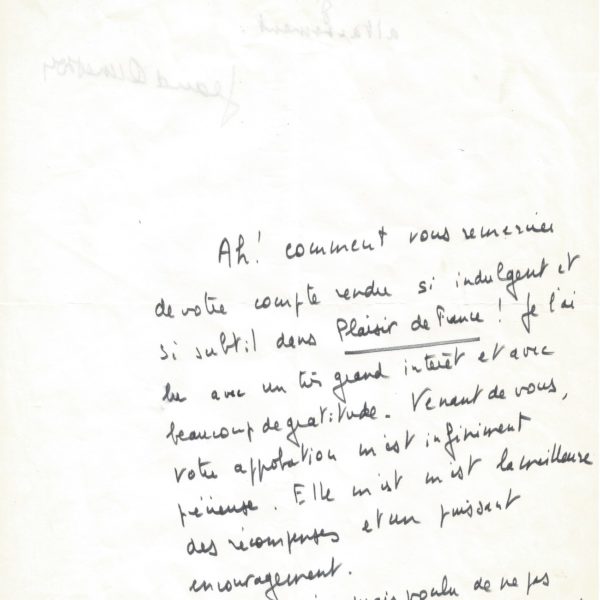 Ah! comment vous remercier
de votre compte rendu si indulgent et
si subtil dans Plaisir de France ! Je l'ai
lu avec un très grand intérêt et avec
beaucoup de gratitude. Venant de vous,
votre approbation m'est infiniment
précieuse. Elle m'est m'est la meilleure
des récompenses et un puissant
encouragement.
voulu de ne pas